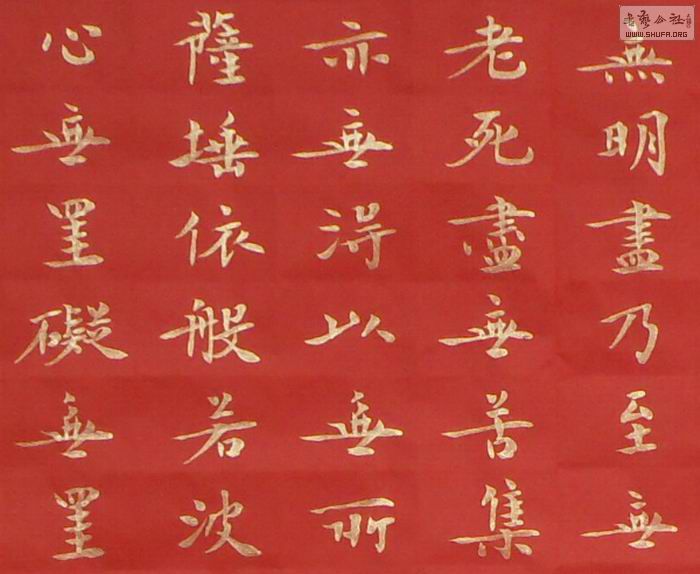 無明盡乃至無
老死盡無苦集
亦無得以無所
薩埵依般若波
心無罣礙無罣
書藝公社
WWW.SHUFA.ORG